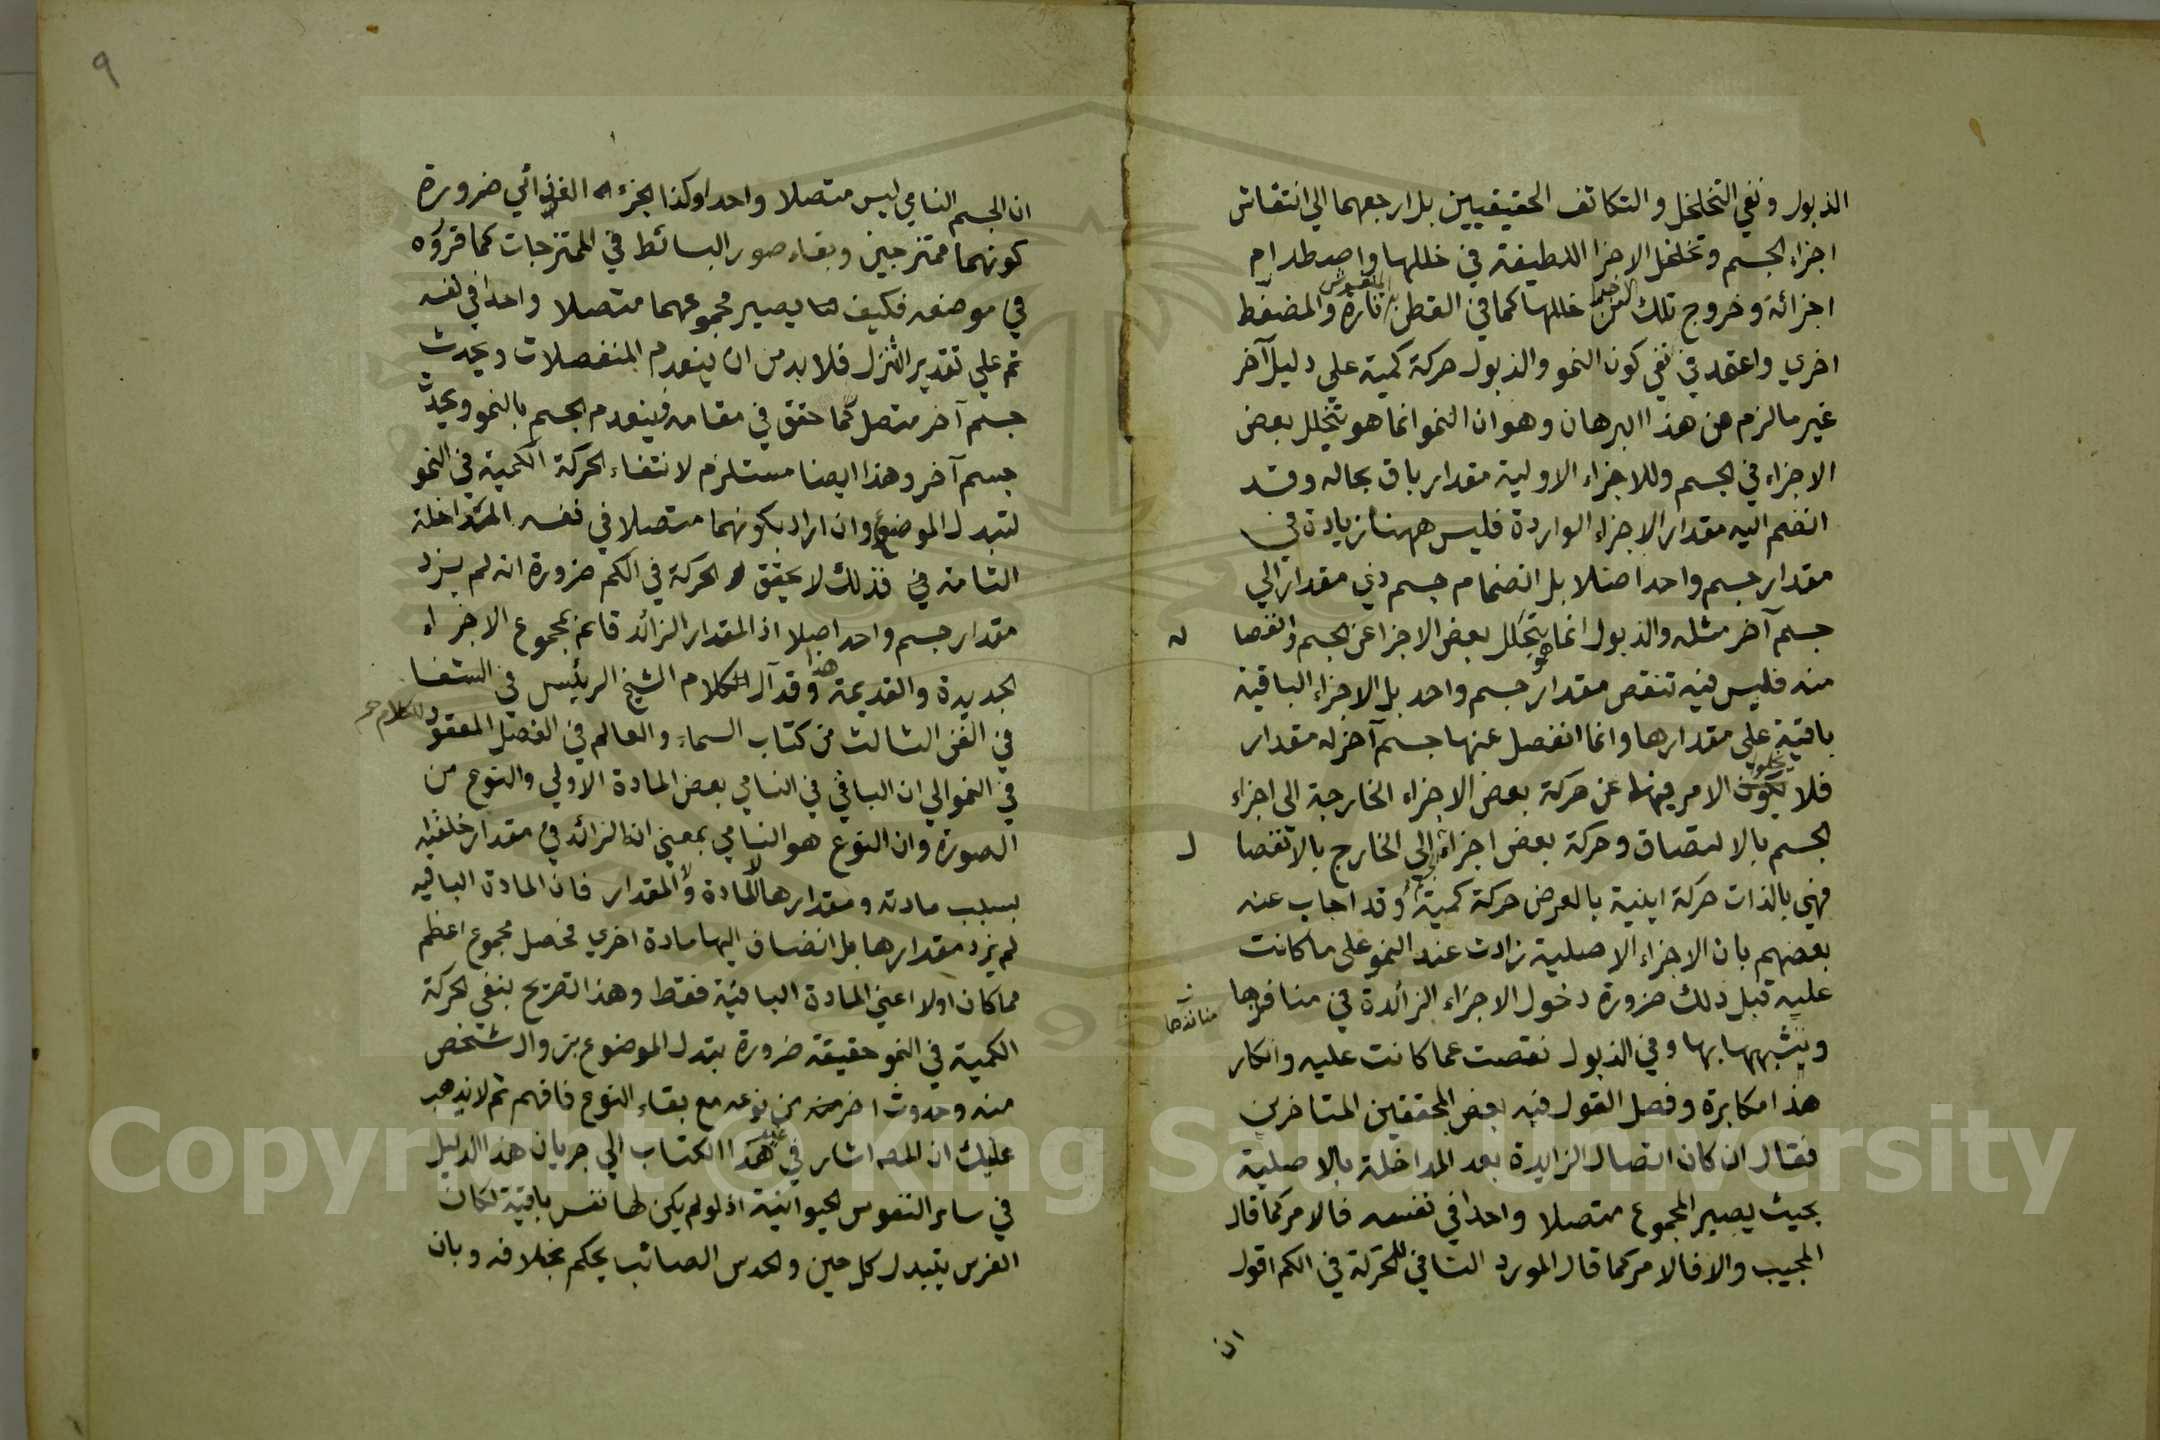 الذبول ونفي التخلخل والتكاثف الحقيقيين بل ارجعهما الي انتقاش
اجزاء الجسم وتخلخل الاجزا اللطيفة في خللها واصطدام
اجزائه وخروج تلك من خللها كما في القطن المنفوش تارة والمضغط
اخري واعتمد في نفي كون النمو والذبول حركة كمية علي دليل آخر
غير ما لزم من هذا البرهان وهو ان النمو انما هو تخلل بعض
الاجزاء في الجسم وللاجزاء الاولية مقدار باق بحاله وقد
انضم اليه مقدار الاجزاء الواردة فليس ههنا زيادة في
مقدار جسم واحد اصلا بل انضمام جسم ذي مقدار الي
جسم آخر مثله والذبول انما هو يتحلل بعض الاجزا عن الجسم وانفصا له
منه فليس فيه تنقص مقدار جسم واحد بل الاجزاء الباقية
باقية علي مقدارها وانما انفصل عنها جسم آخر له مقدار
فلا يخلو الامر فيهما عن حركة بعض الاجزاء الخارجة الى اجزاء
الجسم بالالتصاق وحركة بعض اجزائه الى الخارج بالانفصا ل
فهي بالذات حركة اينية بالعرض حركة كمية وقد اجاب عنه
بعضهم بان الاجزاء الاصلية زادت عند النمو على ما كانت
عليه قبل ذلك ضرورة دخول الاجزاء الزائدة في منافذها
منافذها
وتشبهها بها وفي الذبول نقصت عما كانت عليه وانكار
هذا مكابرة وفصل القول فيه بعض المحققين المتاخرين
فقال ان كان اتصال الزايدة بعد المداخلة بالاصلية
بحيث يصير المجموع متصلا واحدا في نفسه فالامر كما قال
المجيب والا فالامر كما قال المورد النافي للحركة في الكم اقول
ان
٩
ان الجسم النامي ليس متصلا واحدا وكذا الجزء الغذائي ضرورة
كونهما ممتزجين وبقاء صور البسائط في الممتزجات كما قروه
في موضعه فكيف يصير مجموعهما متصلا واحدا في نفسه
ثم علي تقدير التنزل فلا بد من ان ينعدم المنفصلات ويحدث
جسم آخر متصل كما حقق في مقامه فينعدم الجسم بالنمو ويحدث
جسم آخر وهذا ايضا مستلزم لانتفاء الحركة الكمية في النمو
لتبدل الموضوع وان اراد بكونهما متصلا في نفسه المداخلة
التامة في فذلك لا يحقق الحركة في الكم ضرورة انه لم يزد
مقدار جسم واحد اصلا اذ المقدار الزائد قائم بمجموع الاجزاء
الجديدة والقديمة هذا وقد آل الكلام الشيخ الرئيس في الشفا
في الفن الثالث من كتاب السماء والعالم في الفصل المعقود للكلام
في النمو الي ان الباقي في النامي بعض المادة الاولي والنوع من
الصورة وان النوع هو النامي بمعني انه الزائد في مقدار خلقته
بسبب مادته ومقدارها لا المادة والمقدار فان المادة الباقيه
لم يزد مقدارها بل انضاف اليها مادة اخري فحصل مجموع اعظم
مما كان اولا اعني المادة الباقية فقط وهذا تصريح بنفي الحركة
الكمية في النمو حقيقة ضرورة بتدل الموضوع بزوال شخص
منه وحدوث اخر منه من نوعه مع بقاء النوع فافهم ثم لا يذهب
عليك ان المصه اشار في غير هذا الكتاب الي جريان هذا الدليل
في ساير النفوس الحيوانية اذ لو لم يكن لها نفس باقية لكان
الفرس يتبدل كل حين والحدس الصائب يحكم بخلافه وبان
Copyright © King Saud University